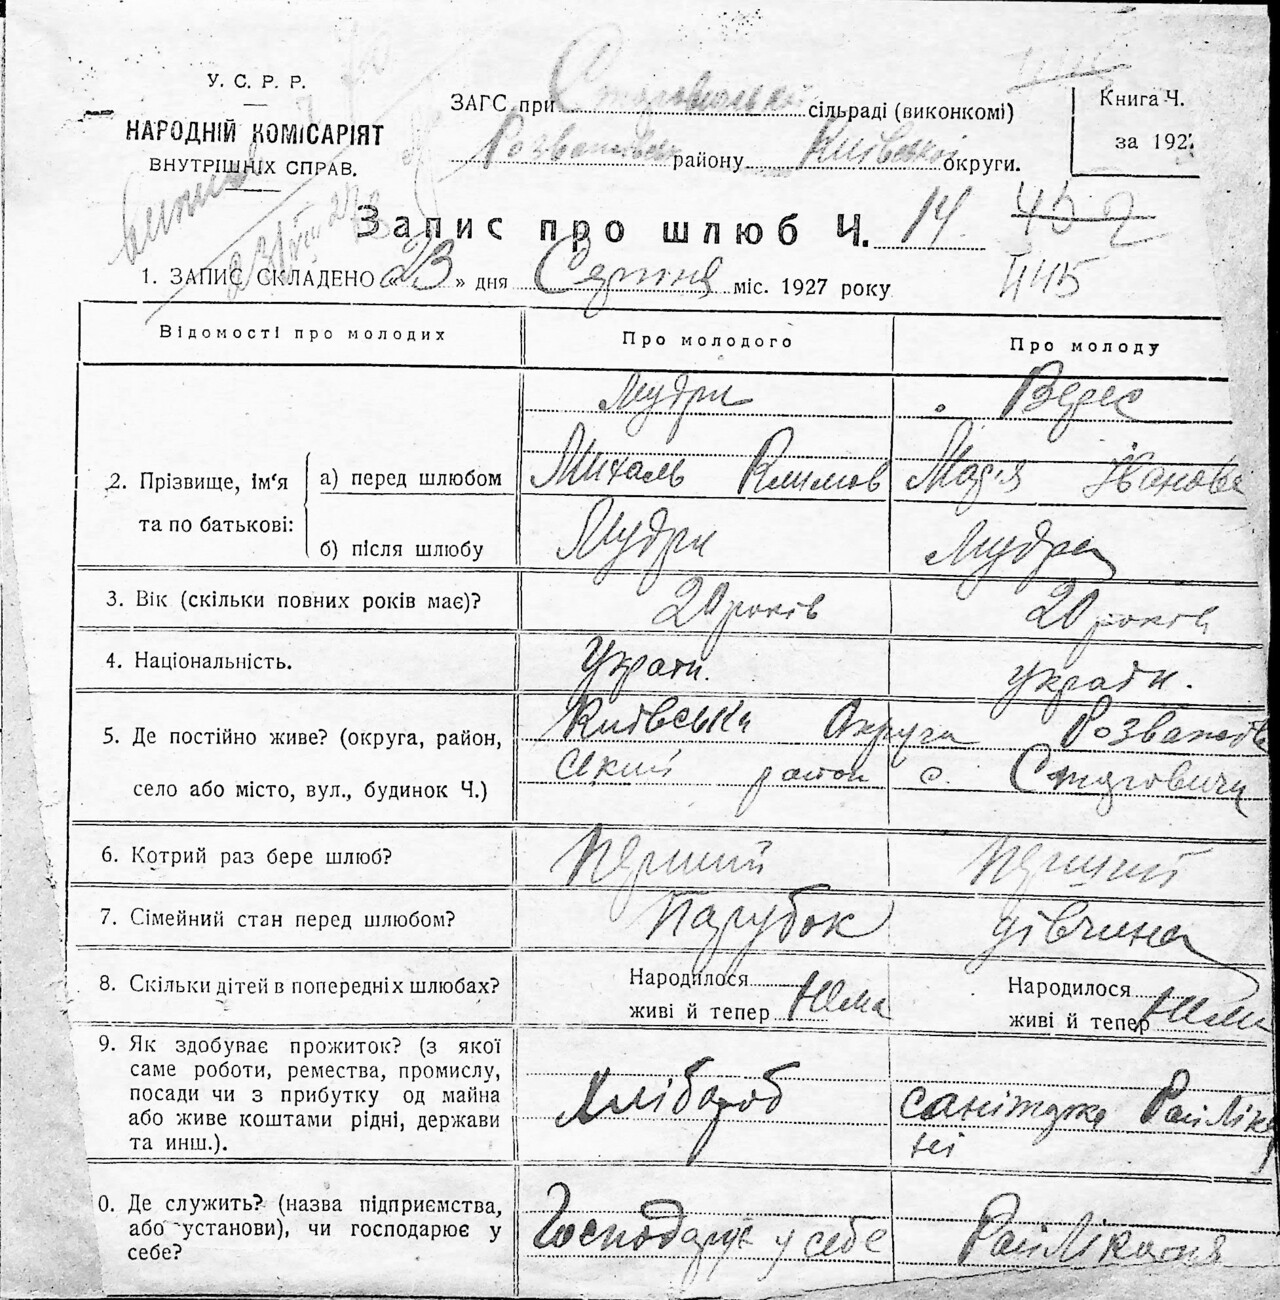 У. С. Р. Р.
НАРОДНІЙ КОМІСАРІЯТ
ВНУТРІШНІХ СПРАВ.
ЗАГС при сільраді (виконкомі)
району Київської округи.
Книга Ч.
за 192
Запис про шлюб Ч. 14
452
445
1. ЗАПИС СКЛАДЕНО «23» дня Серпня міс. 1927 року
Відомості про молодих
Про молодого
Про молоду
2. Прізвище, ім'я та по батькові:
а) перед шлюбом
Мудри
Михаль Климов
Верес
Марія Іванова
б) після шлюбу
Мудри
Мудра
3. Вік (скільки повних років має)?
20 років
20 років
4. Національність.
Україн.
україн.
5. Де постійно живе? (округа, район,
село або місто, вул., будинок Ч.)
Київська Округа Розважів
ський район с. Старовичи
6. Котрий раз бере шлюб?
Перший
Перший
7. Сімейний стан перед шлюбом?
Парубок
дівчина
8. Скільки дітей в попередніх шлюбах?
Народилося
живі й тепер Нема
Народилося
живі й тепер Нема
9. Як здобуває прожиток? (з якої
саме роботи, ремества, промислу,
посади чи з прибутку од майна
або живе коштами рідні, держави
та инш.).
Хлібороб
санітарка РайЛікар
ні
0. Де служить? (назва підприємства,
або установи), чи господарює у
себе?
Господарує у себе
РайЛікарня